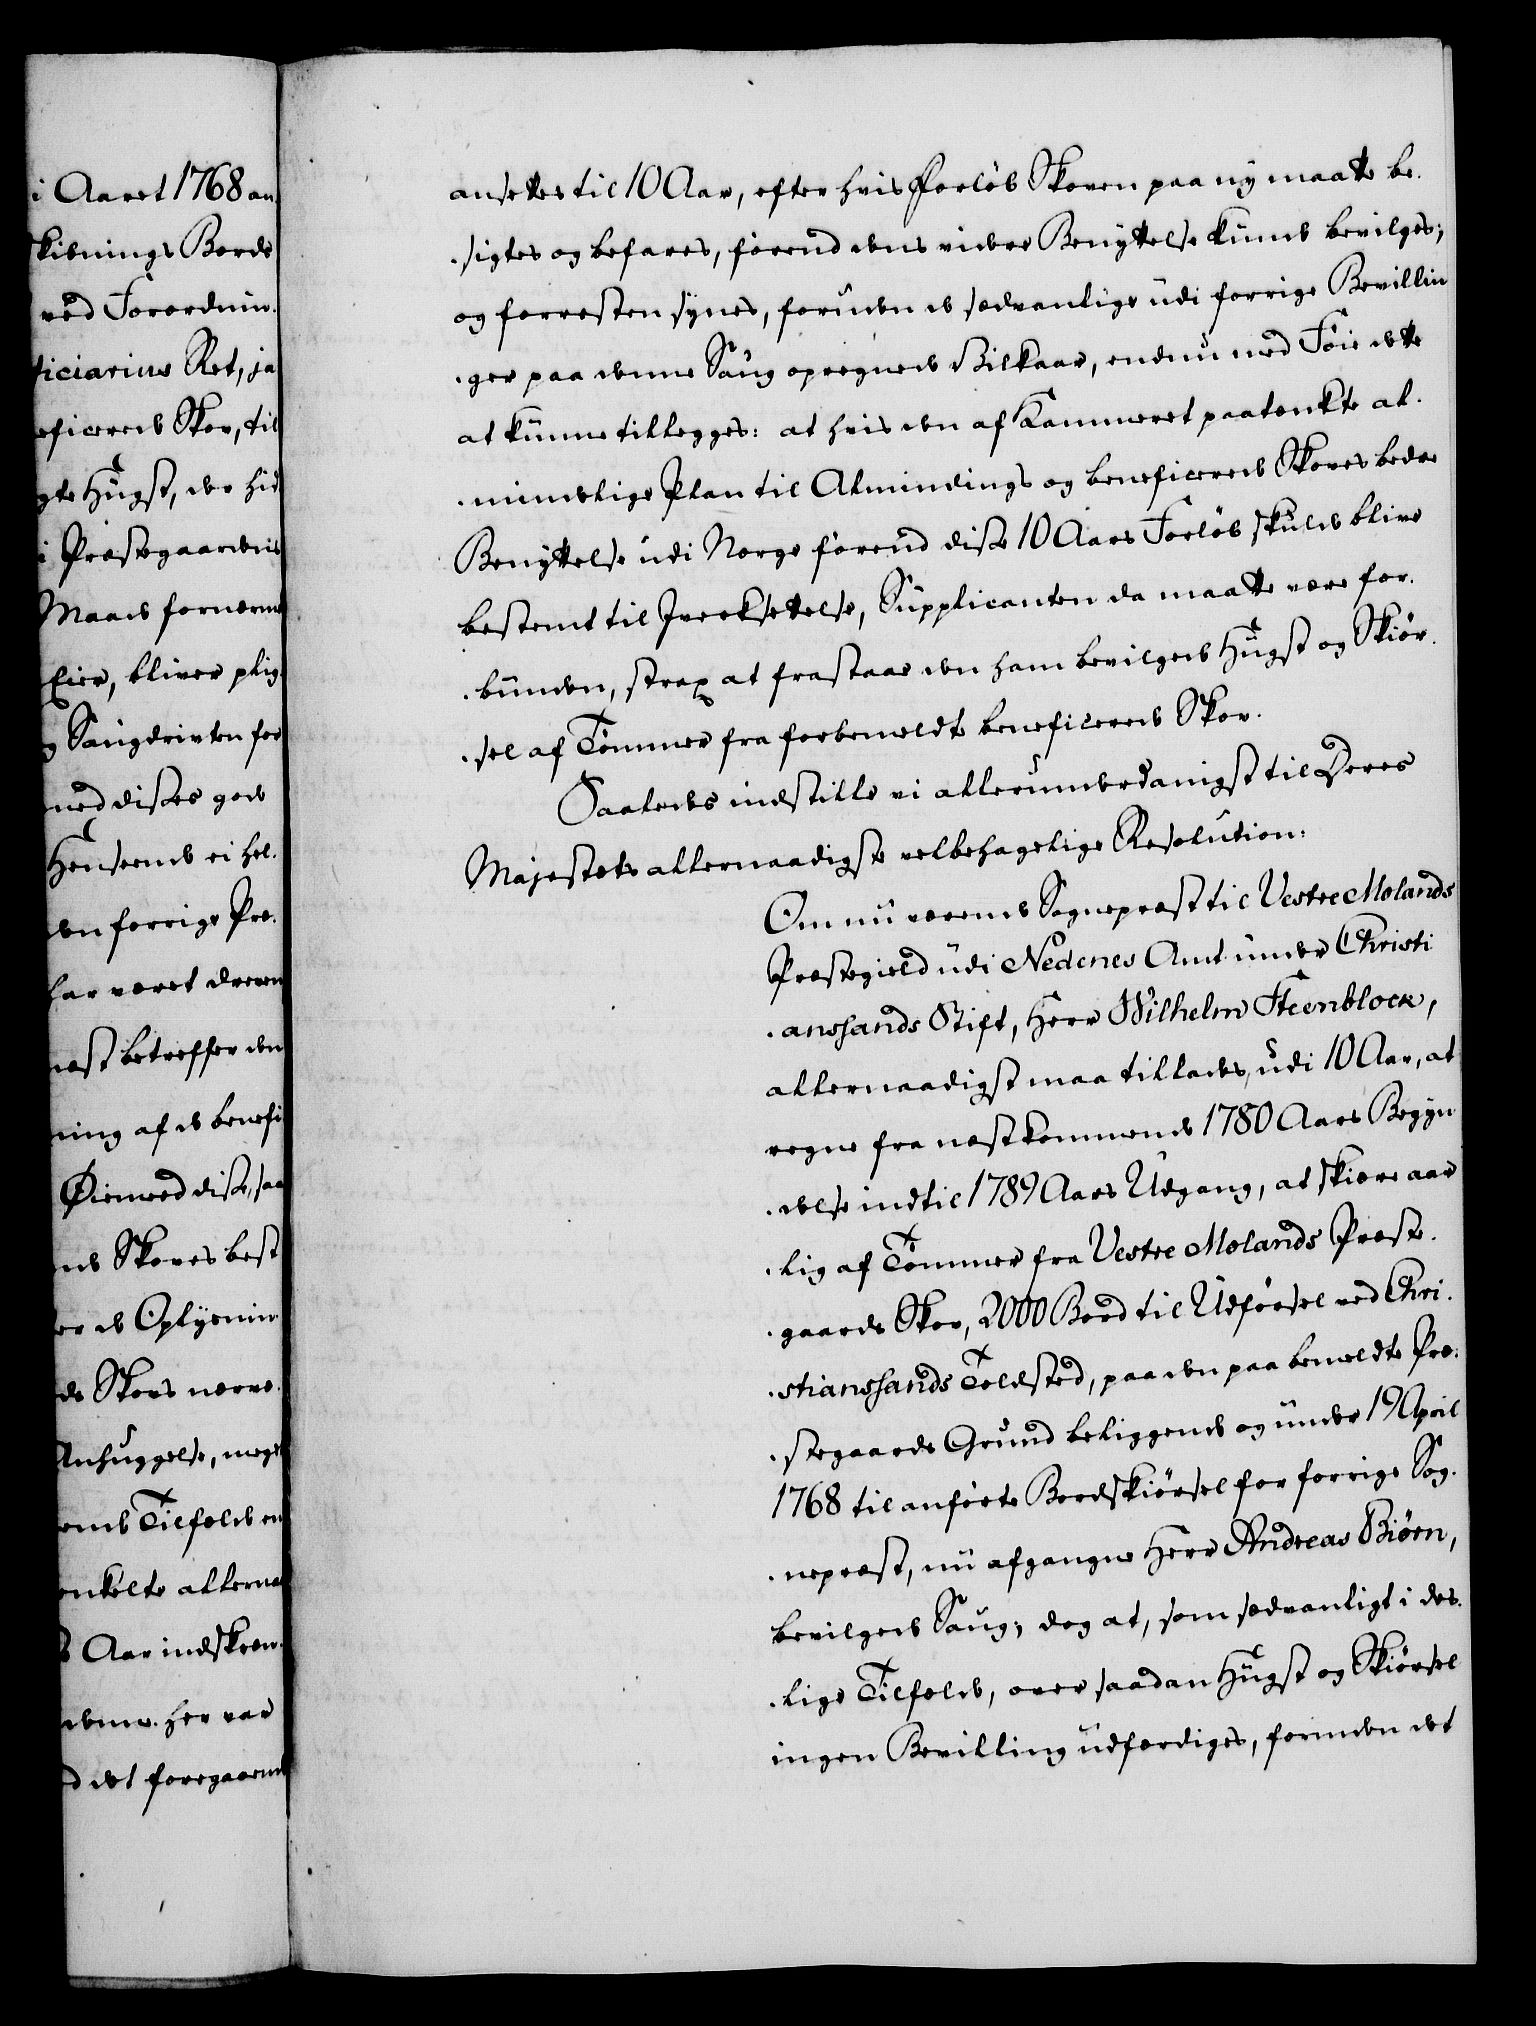 i Aaret 1768 an
skibnings Borde
ved Forordnin.
ticiarius Ret, ja
eficerede Skov, til
gte Hugst, der hid
i Præstegaardens
Maade fornærme
Eier, bliver plig.
g Saugdrivten for
med disses gode
Henseende ei hel.
den forrige Præ.
har været dreven
næst betreffer den
ning af de benefi
Øiemeed disse, saa
nde Skoves best
er de Oplysnin
de Skovs nærvæ.
Anhuggelse, meget
ende Tilfælde en
enkelte allerna
s Aar indskræn.
denne. her var
d det foregaaende
ansettes til 10 Aar, efter hvis Forløb Skoven paa ny maatte be.
.sigtes og befares, førend dens videre Benyttelse kunde bevilges;
og forresten synes, foruden de sædvanlige udi forrige Bevillin
.ger paa denne Saug opregnede Vilkaar, endnu med Føie dette
at kunne tillegges: at hvis den af Kammeret paatænkte al.
.mindelige Plan til Almindings og beneficerede Skoves bedre
Benyttelse udi Norge førend disse 10 Aars Forløb skulde blive
bestemt til Iverksettelse, Supplicanten da maatte være for.
.bunden, strax at frastaae den ham bevilgede Hugst og Skiør.
.sel af Tømmer fra forbemeldte beneficerede Skov.
Saaledes indstille vi allerunderdanigst til Deres
Majestæts allernaadigste velbehagelige Resolution:
Om nu værende Sognepræst til Vestre Molands
Præstegield udi Nedenes Amt under Christi
.ansands Stift, Herr Wilhelm Steenblock,
allernaadigst maa tillades, udi 10 Aar, at
regne fra næstkommende 1780 Aars Begyn
.delse indtil 1789 Aars Udgang, at skiære aar
.lig af Tømmer fra Vestre Molands Præste.
.gaards Skov, 2000 Bord til Udførsel ved Chri.
.stiansands Toldsted, paa den paa bemeldte Præ.
.stegaards Grund beliggende og under 19 April
1768 til anførte Bordskiørsel for forrige Sog.
.nepræst, nu afgangne Herr Andreas Biørn,
bevilgede Saug; dog at, som sædvanligt i des.
.lige Tilfælde, over saadan Hugst og Skiørsel
ingen Bevilling udfærdiges, forinden det